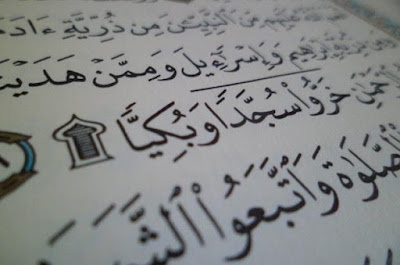 عَلَيْهِم مِّنَ ٱلنَّبِيِّـۧنَ مِن ذُرِّيَّةِ ءَادَ
إِبْرَٰهِيمَ وَإِسْرَٰٓءِيلَ وَمِمَّنْ هَدَيْنَ
خَرُّوا۟ سُجَّدًا وَبُكِيًّا ۩
ٱلصَّلَوٰةَ وَٱتَّبَعُوا۟ ٱلشَّهَ